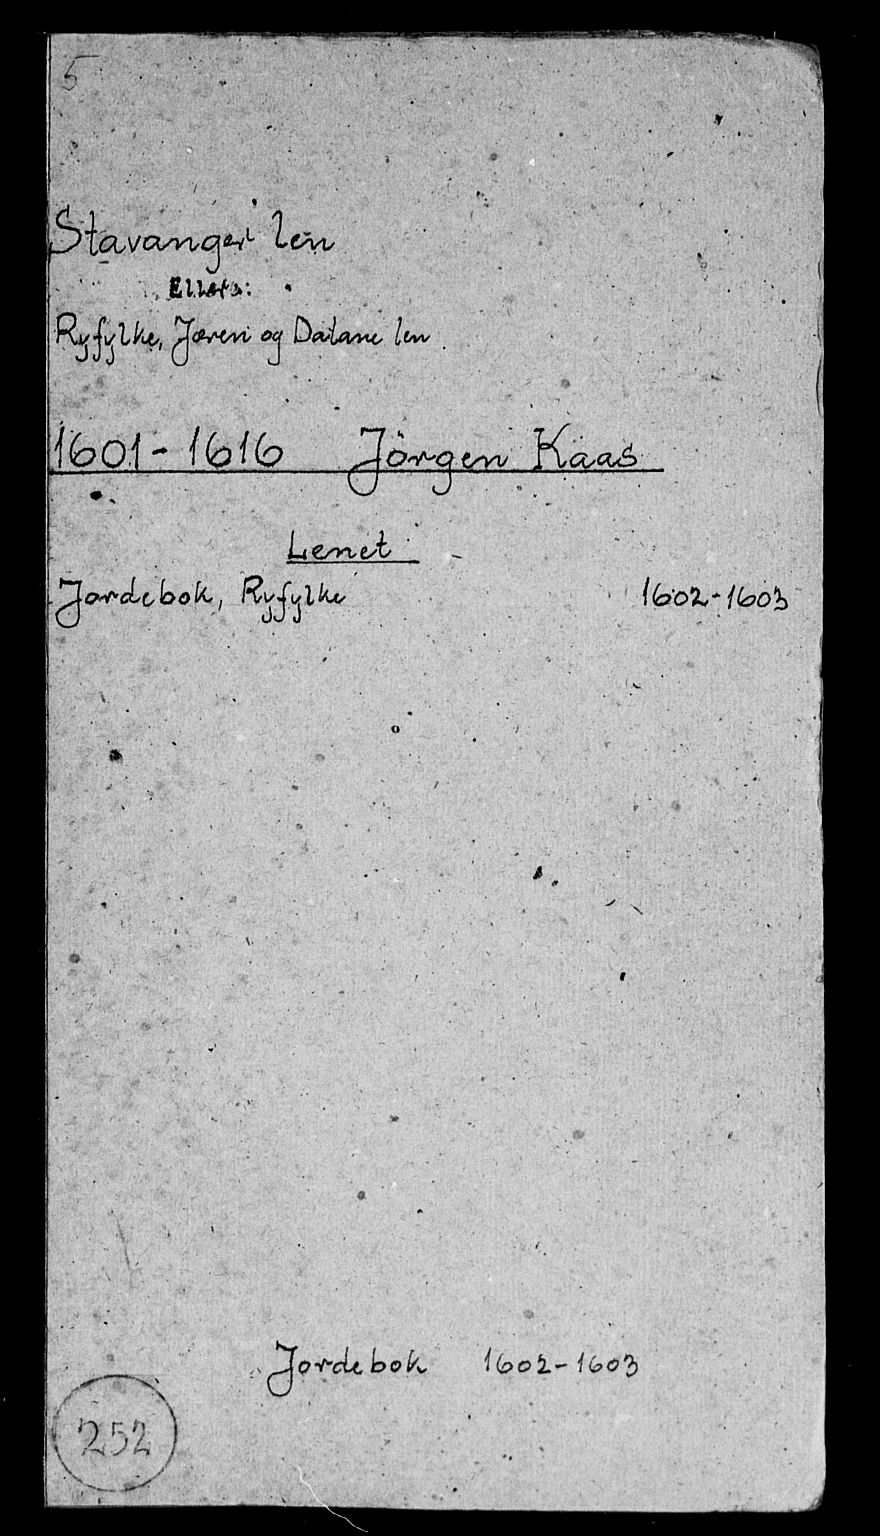 5
Stavanger len
Ellers:
Ryfylke, Jæren og Dalane len
1601-1616 Jörgen Kaas
Lenet
Jordebok, Ryfylke 1602-1603
Jordebok 1602-1603
252